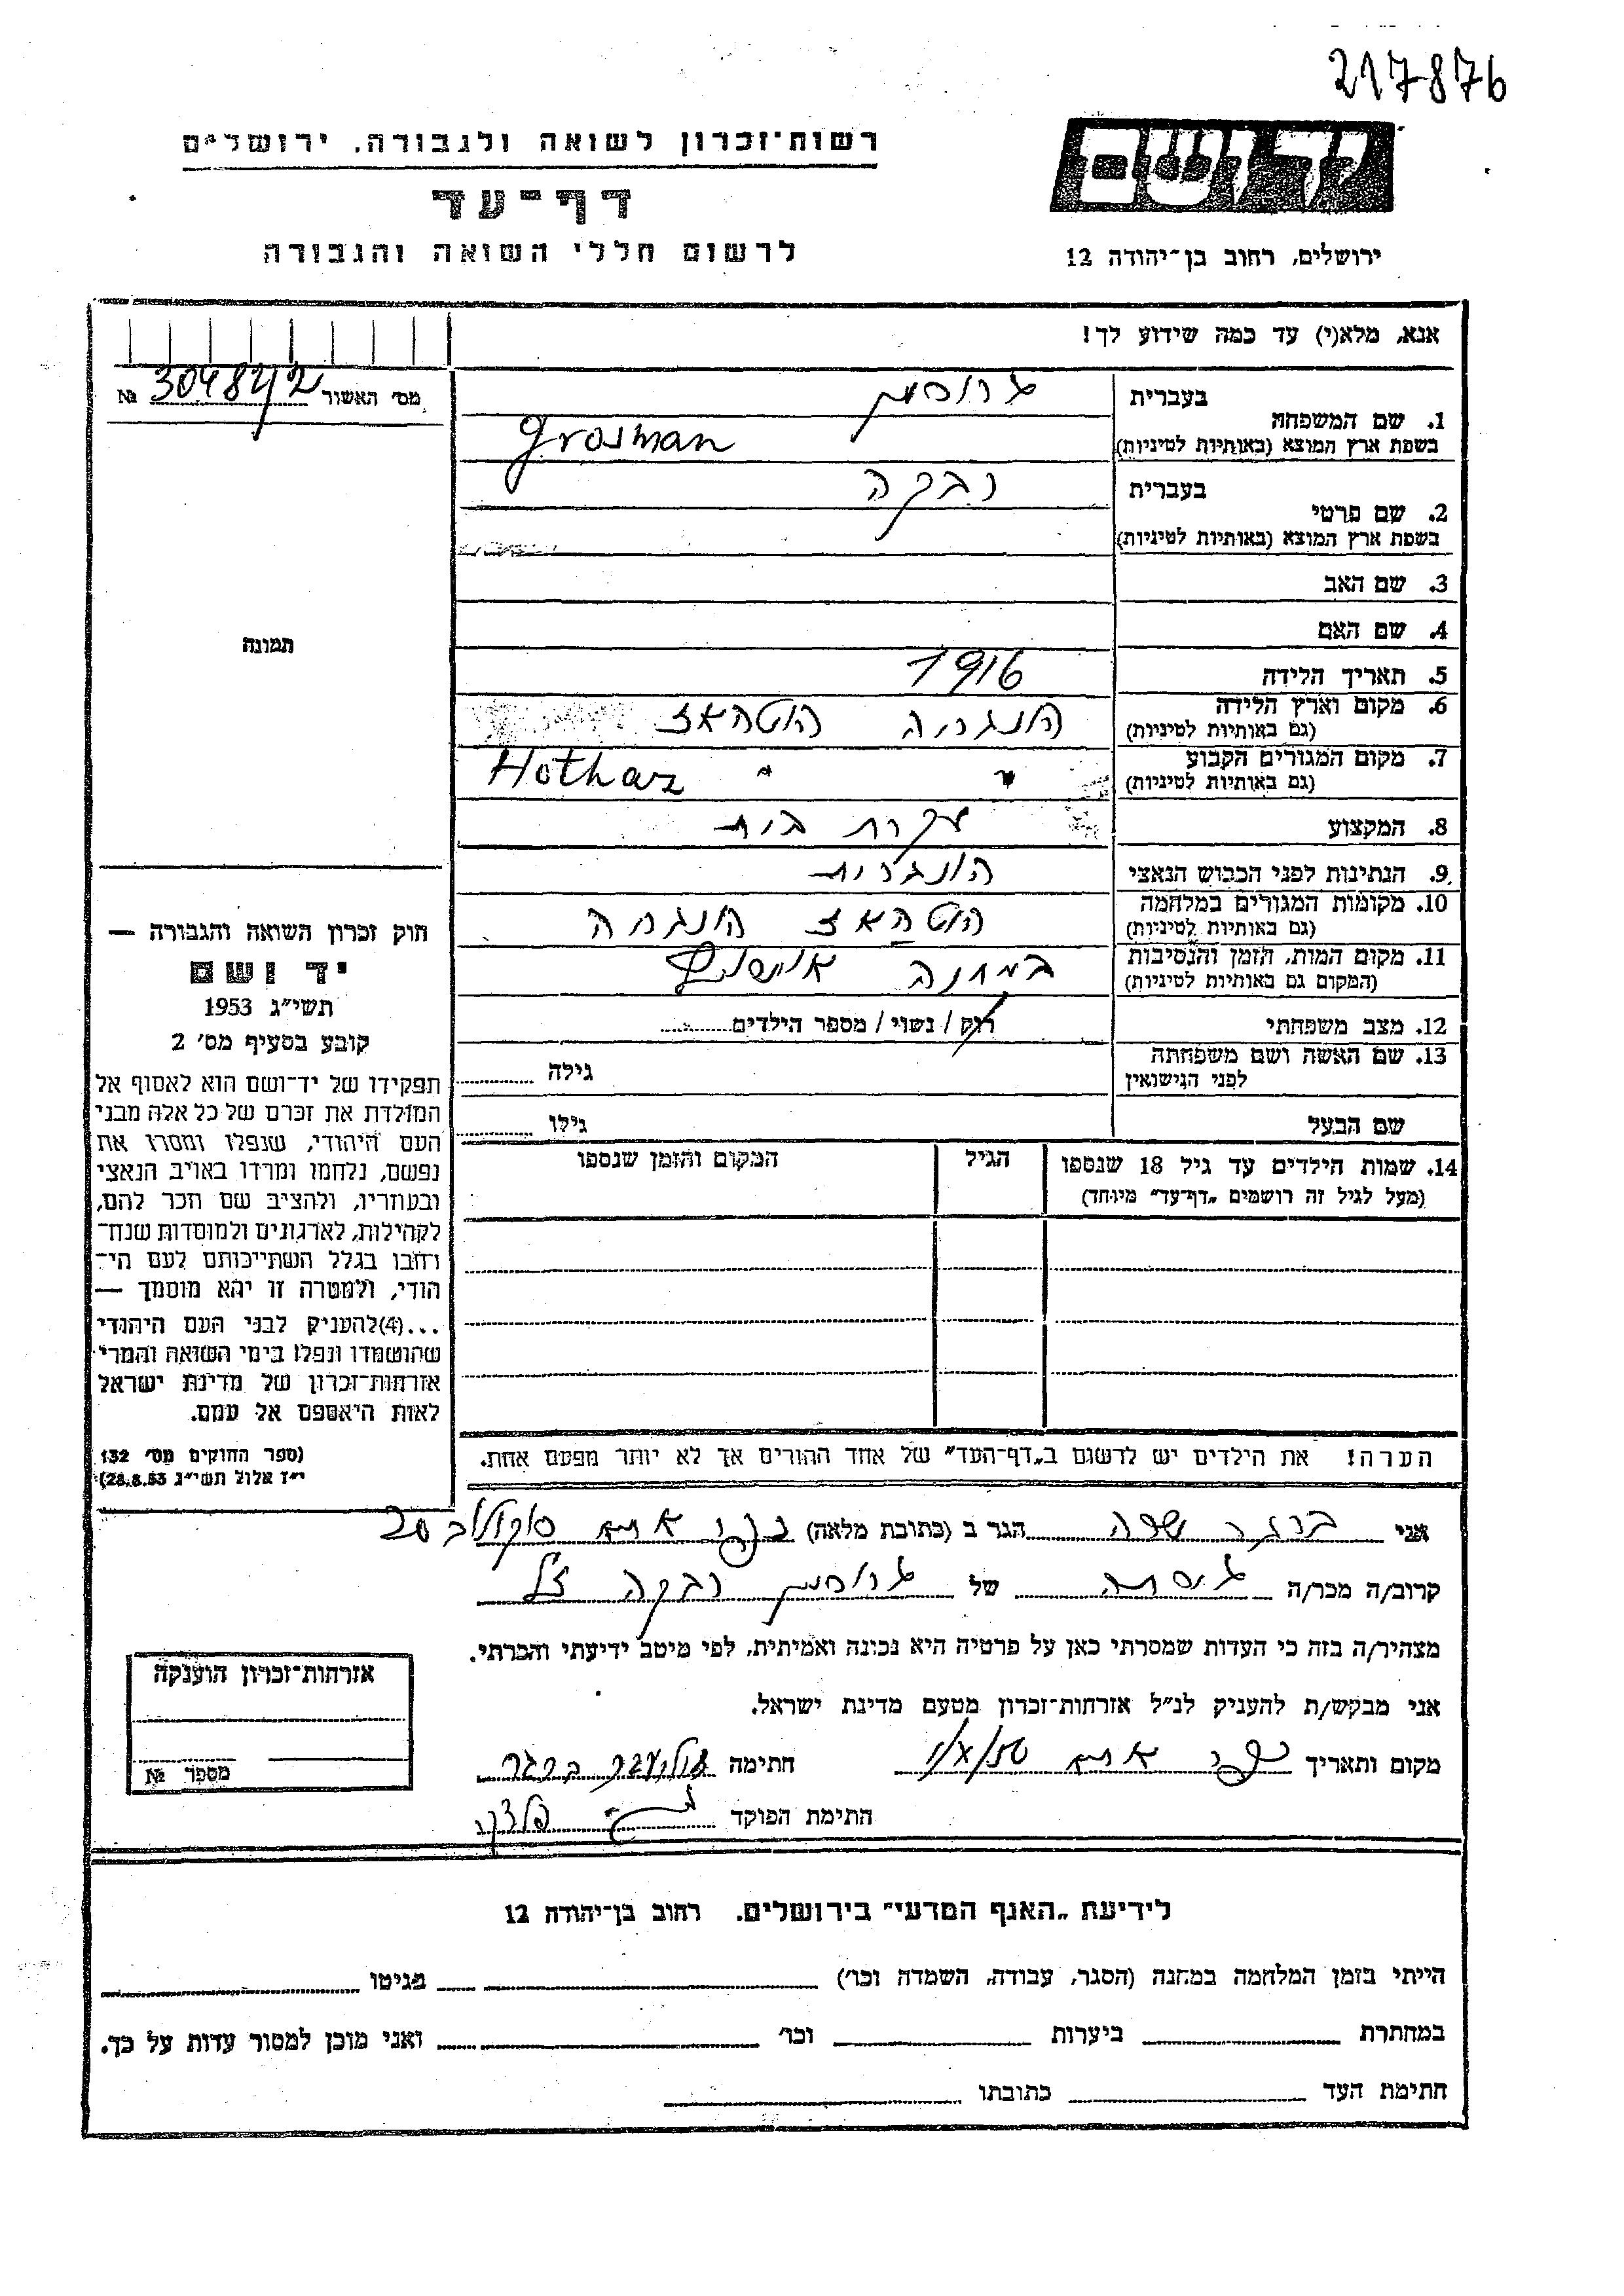 217876
יד ושם
ירושלים, רחוב בן־יהודה 12
רשות־זכרון לשואה ולגבורה, ירושלים
דף־עד
לרשום חללי השואה והגבורה
אנא, מלא(י) עד כמה שידוע לך!
מס' האשור 304842 №
תמונה
בעברית גרוסמן
1. שם המשפחה
בשפת ארץ המוצא (באותיות לטיניות) Grosman
בעברית רבקה
2. שם פרטי
בשפת ארץ המוצא (באותיות לטיניות)
3. שם האב
4. שם האם
5. תאריך הלידה 1916
6. מקום וארץ הלידה הונגריה הוטהאז
(גם באותיות לטיניות)
7. מקום המגורים הקבוע " " Hothaz
(גם באותיות לטיניות)
8. המקצוע עקרת בית
9. הנתינות לפני הכבוש הנאצי הונגרית
10. מקומות המגורים במלחמה הוטהאז הונגריה
(גם באותיות לטיניות)
11. מקום המות, הזמן והנסיבות במחנה אושויץ
(המקום גם באותיות לטיניות)
12. מצב משפחתי רוק / נשוי / מספר הילדים
13. שם האשה ושם משפחתה
לפני הנישואין גילה
שם הבעל גילו
14. שמות הילדים עד גיל 18 שנספו הגיל המקום והזמן שנספו
(מעל לגיל זה רושמים „דף־עד" מיוחד)
הערה! את הילדים יש לרשום ב„דף־העד" של אחד ההורים אך לא יותר מפעם אחת.
חוק זכרון השואה והגבורה —
יד ושם
תשי"ג 1953
קובע בסעיף מס' 2
תפקידו של יד־ושם הוא לאסוף אל
המולדת את זכרם של כל אלה מבני
העם היהודי, שנפלו ומסרו את
נפשם, נלחמו ומרדו באויב הנאצי
ובעוזריו, ולהציב שם וזכר להם,
לקהילות, לארגונים ולמוסדות שנח־
רבו בגלל השתייכותם לעם הי־
הודי, ולמטרה זו יהא מוסמך —
...(4)להעניק לבני העם היהודי
שהושמדו ונפלו בימי השואה והמרי
אזרחות־זכרון של מדינת ישראל
לאות היאספם אל עמם.
(ספר החוקים מס' 132
י"ז אלול תשי"ג 28.8.53)
אני ברגר שרה הגר ב (כתובת מלאה) קרית אתא סוקולוב 20
קרוב/ה מכר/ה גיסה של גרוסמן רבקה ז"ל
מצהיר/ה בזה כי העדות שמסרתי כאן על פרטיה היא נכונה ואמיתית, לפי מיטב ידיעתי והכרתי.
אני מבקש/ת להעניק לנ"ל אזרחות־זכרון מטעם מדינת ישראל.
מקום ותאריך קרית אתא חתימה ברגר
חתימת הפוקד
אזרחות־זכרון הוענקה
מספר №
לידיעת „האגף המדעי" בירושלים, רחוב בן־יהודה 12
הייתי בזמן המלחמה במחנה (הסגר, עבודה, השמדה וכו') בגיטו
במחתרת ביערות וכו' ואני מוכן למסור עדות על כך.
חתימת העד כתובתו